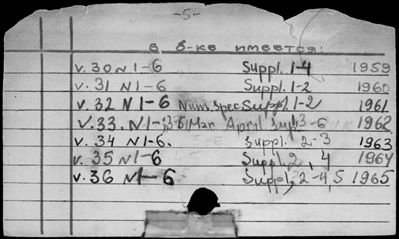 -5-
в б-ке имеется:
v. 30 N 1-6 Suppl. 1-4 1959
v. 31 N 1-6 Suppl. 1-2 1960
v. 32 N 1-6 Num. Spec. Suppl. 1-2 1961
v. 33. N 1- Mar April Suppl. 3-6 1962
v. 34 N 1-6. Suppl. 2-3 1963
v. 35 N 1-6 Suppl. 2, 4 1964
v. 36 N 1-6 Suppl. 2-4, 5 1965